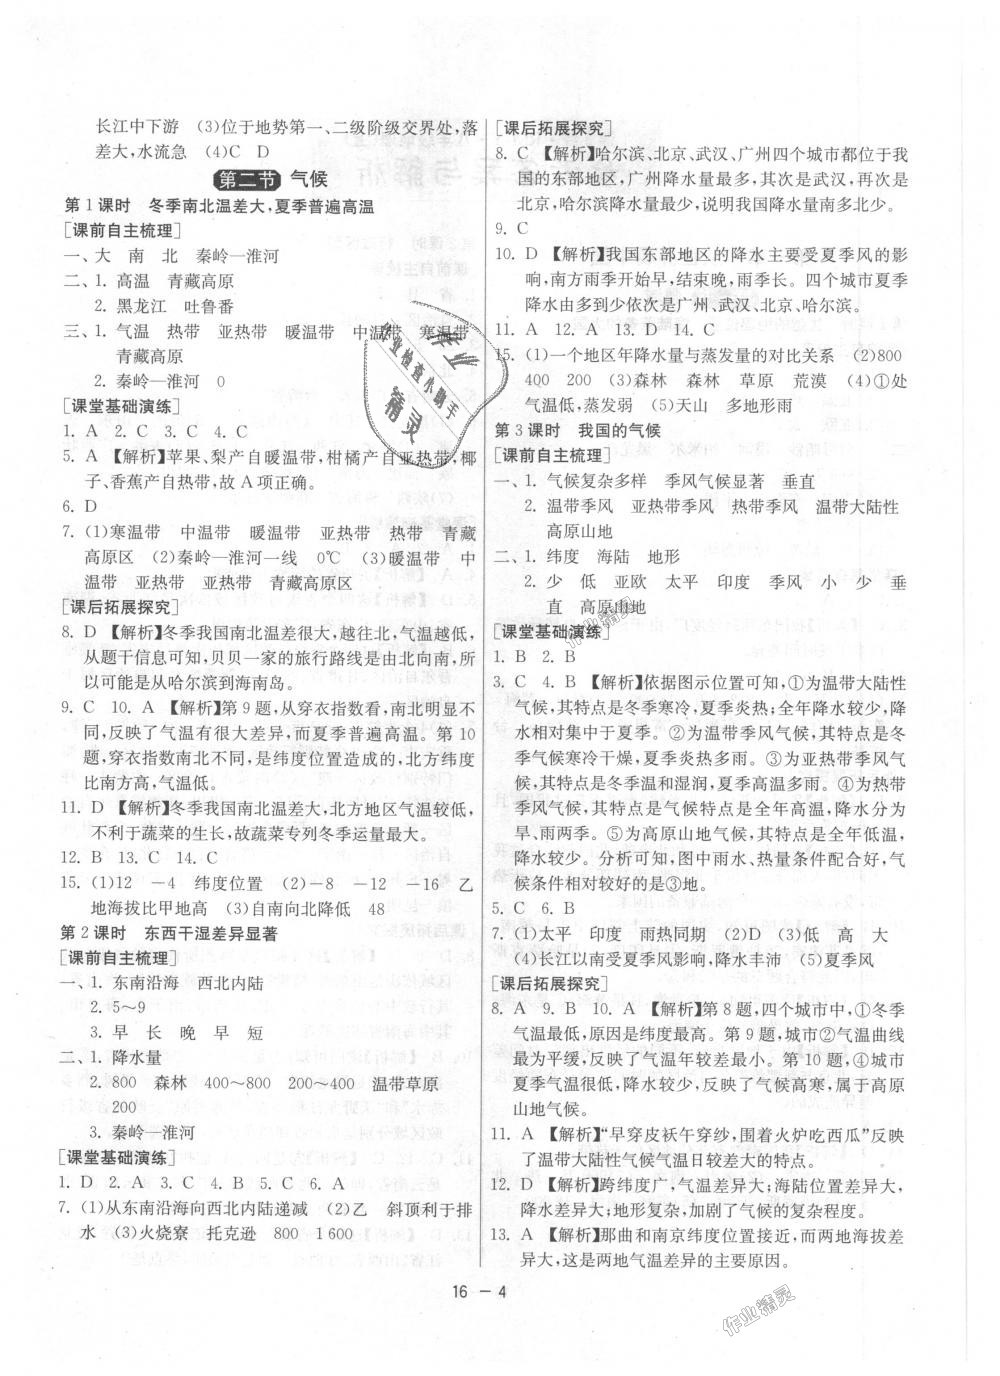 长江中下游　(3)位于地势第一、二级阶级交界处,落
差大,水流急　(4)C　D
第二节 气候
第 1 课时　冬季南北温差大,夏季普遍高温
[课前自主梳理]
一、大　南　北　秦岭—淮河
二、1. 高温　青藏高原
2. 黑龙江　吐鲁番
三、1. 气温　热带　亚热带　暖温带　中温带　寒温带
青藏高原
2. 秦岭—淮河　0
[课堂基础演练]
1. A　2. C　3. C　4. C
5. A　【解析】苹果、梨产自暖温带,柑橘产自亚热带,椰
子、香蕉产自热带,故 A 项正确。
6. D
7. (1)寒温带　中温带　暖温带　亚热带　热带　青藏
高原区　(2)秦岭—淮河一线　0℃　(3)暖温带　中
温带　亚热带　亚热带　青藏高原区
[课后拓展探究]
8. D　【解析】冬季我国南北温差很大,越往北,气温越低,
从题干信息可知,贝贝一家的旅行路线是由北向南,所
以可能是从哈尔滨到海南岛。
9. C　10. A　【解析】第 9 题,从穿衣指数看,南北明显不
同,反映了气温有很大差异,而夏季普遍高温。第 10
题,穿衣指数南北不同,是纬度因素造成的,北方纬度
比南方高,气温低。
11. D　【解析】冬季我国南北温差大,北方地区气温较低,
不利于蔬菜的生长,故蔬菜专列冬季运量最大。
12. B　13. C　14. C
15. (1)12　－4　纬度位置　(2)－8　－12　－16　乙
地海拔比甲地高　(3)自南向北降低　48
第 2 课时　东西干湿差异显著
[课前自主梳理]
一、1. 东南沿海　西北内陆
2. 5～9
3. 早　长　晚　早　短
二、1. 降水量
2. 800　森林　400～800　200～400　温带草原
200
3. 秦岭—淮河
[课堂基础演练]
1. D　2. A　3. C　4. B　5. C　6. A
7. (1)从东南沿海向西北内陆递减　(2)乙　斜顶利于排
水　(3)火烧寮　托克逊　800　1 600
[课后拓展探究]
8. C　【解析】哈尔滨、北京、武汉、广州四个城市都位于我
国的东部地区,广州降水量最多,其次是武汉,再次是
北京,哈尔滨降水量最少,说明我国南多北少。
9. C
10. D　【解析】我国东部地区的降水主要受夏季风的影
响,南方雨季开始早,结束晚,雨季长。四个城市夏季
降水由多到少依次是广州、武汉、北京、哈尔滨。
11. A　12. A　13. D　14. C
15. (1)一个地区年降水量与蒸发量的对比关系　(2)800
400　200　(3)森林　森林　草原　荒漠　(4)①处
气温低,蒸发弱　(5)天山　多地形雨
第 3 课时　我国的气候
[课前自主梳理]
一、1. 气候复杂多样　季风气候显著　垂直
2. 温带季风　亚热带季风　热带季风　温带大陆性
高原山地
二、1. 纬度　海陆　地形
2. 少　低　亚欧　太平　印度　季风　小　少　垂
直　高原山地
[课堂基础演练]
1. B　2. B
3. C　4. B　【解析】依据图示位置可知,①为温带大陆性
气候,其特点是冬季寒冷,夏季炎热;全年降水较少,降
水相对集中于夏季。②为温带季风气候,其特点是冬
季气候寒冷干燥,夏季炎热多雨。③为亚热带季风气
候,其特点是冬季温和湿润,夏季高温多雨。④为热带
季风气候,其特点是气候特点是全年高温,降水分为
旱、雨两季。⑤为高原山地气候,其特点是全年低温,
降水较少。分析可知,图中雨水、热量条件配合好,气
候条件相对较好的是③地。
5. C　6. B
7. (1)太平　印度　雨热同期　(2)D　(3)低　高　大
(4)长江以南受夏季风影响,降水丰沛　(5)夏季风
[课后拓展探究]
8. A　9. B　10. D　【解析】第 8 题,四个城市中,①冬季
气温最低,原因是纬度最高。第 9 题,城市②气温曲线
最为平缓,反映了气温年较差最小。第 10 题,④城市
夏季气温很低,降水较少,反映了气候高寒,属于高原
山地气候。
11. A　【解析】“早穿皮袄午穿纱,围着火炉吃西瓜”反映
了温带大陆性气候气温日较差大的特点。
12. D　【解析】跨纬度广,气温差异大;海陆位置差异大,
降水差异大;地形复杂,加剧了气候的复杂程度。
13. A　【解析】那曲和南京纬度位置接近,而两地海拔差
异大,这是两地气温差异的主要原因。
16 － 4
作业检查小助手
精灵
作业精灵
作业精灵